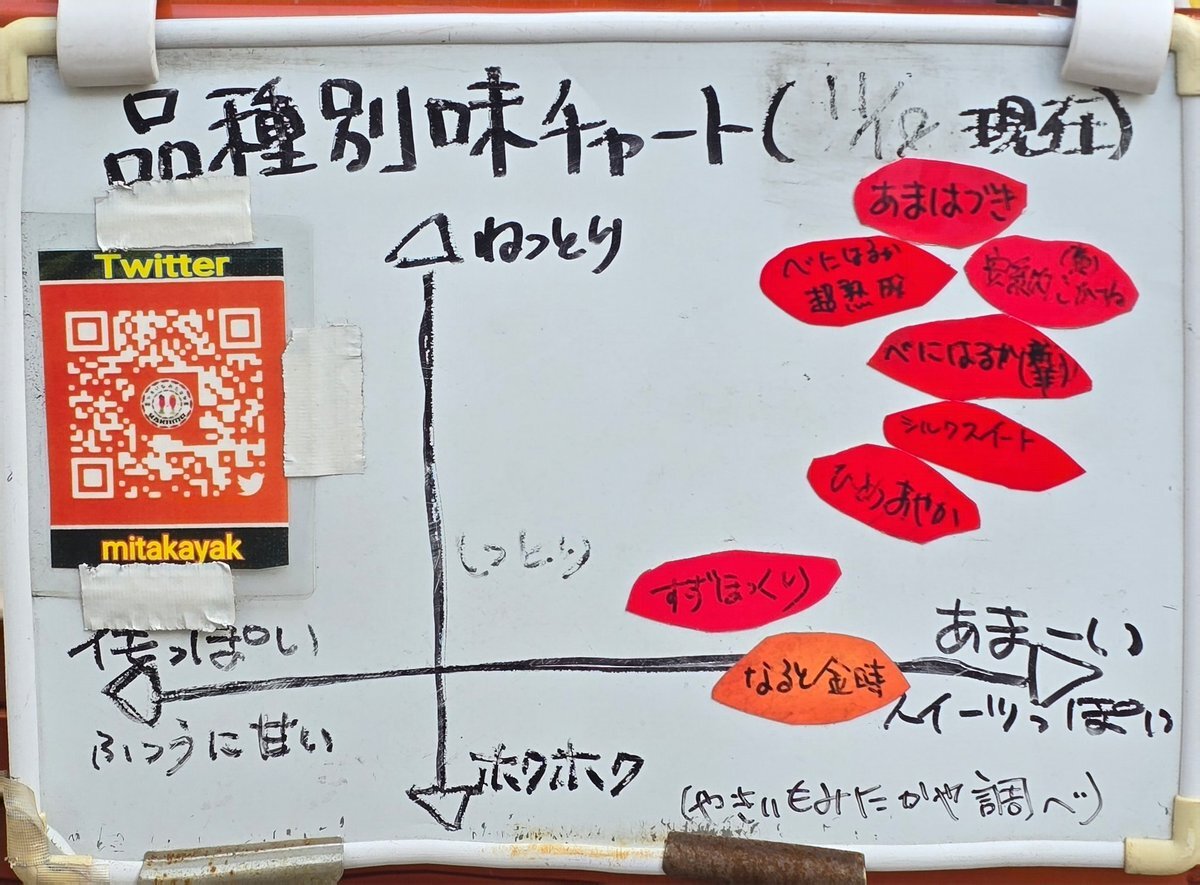 品種別味チャート(11/12 現在)
あまはづき
ねっとり
べにはるか
超熟成
Twitter
べにはるか
シルクスイート
ひめあやか
mitakayak
しっとり
すずほっくり
あまーい
イモっぽい
なると金時
スイーツっぽい
ふつうに甘い
ホクホク
(やきいもみたかや調べ)